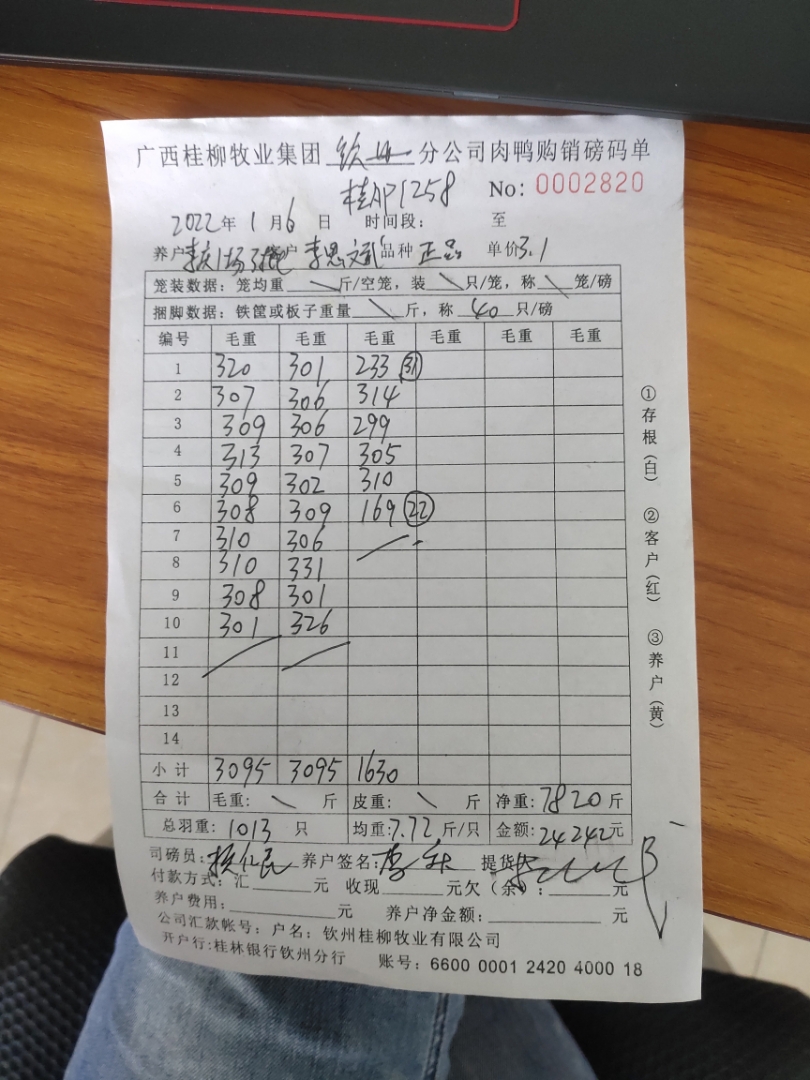 广西桂柳牧业集团 钦州 分公司肉鸭购销磅码单
桂AP1258 No: 0002820
2022年 1月6日 时间段: 至
养户 李庆 客户 李思文 品种 正品 单价3.1
笼装数据: 笼均重 \ 斤/空笼, 装 \ 只/笼, 称 \ 笼/磅
捆脚数据: 铁筐或板子重量 \ 斤, 称 40 只/磅
编号 毛重 毛重 毛重 毛重 毛重 毛重
1 320 301 233 (31)
2 307 306 314
3 309 306 299
4 313 307 305
5 309 302 310
6 308 309 169 (22)
7 310 306
8 310 331
9 308 301
10 301 326
11
12
13
14
小计 3095 3095 1630
合计 毛重: \ 斤 皮重: \ 斤 净重: 7820斤
总羽重: 1013 只 均重: 7.72 斤/只 金额: 24242元
司磅员: 养户签名: 提货人
付款方式: 汇 元 收现 元欠(余): 元
养户费用: 元 养户净金额: 元
公司汇款帐号: 户名: 钦州桂柳牧业有限公司
开户行:桂林银行钦州分行 账号: 6600 0001 2420 4000 18
①存根(白) ②客户(红) ③养户(黄)